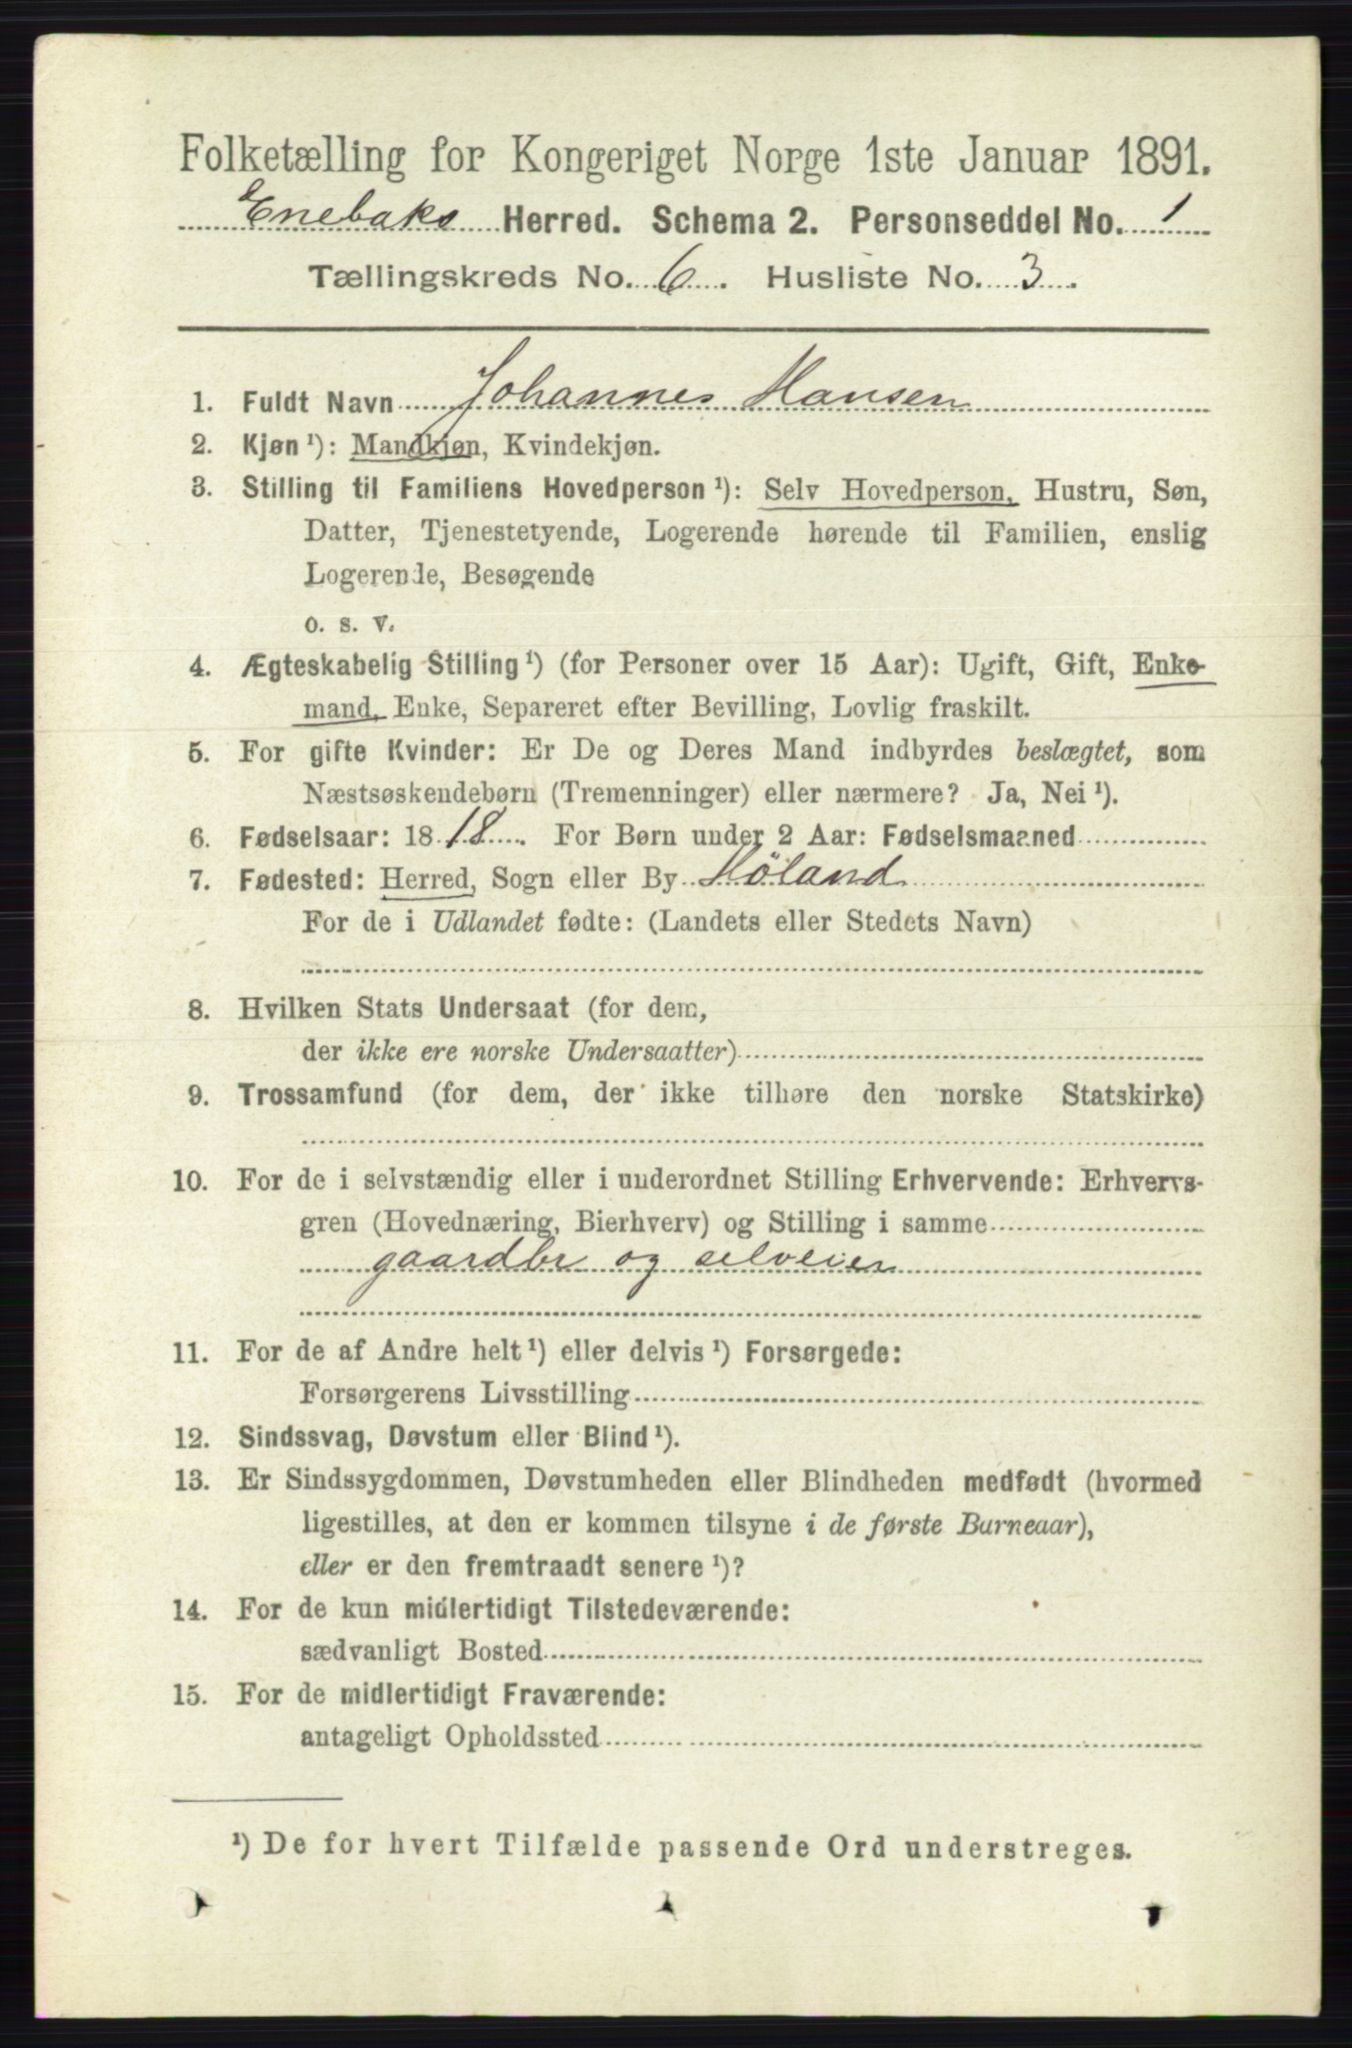 Folketælling for Kongeriget Norge 1ste Januar 1891.
Enebaks Herred. Schema 2. Personseddel No. 1
Tællingskreds No. 6. Husliste No. 3.
1. Fuldt Navn Johannes Hansen
2. Kjøn ¹): Mandkjøn, Kvindekjøn.
3. Stilling til Familiens Hovedperson ¹): Selv Hovedperson, Hustru, Søn,
Datter, Tjenestetyende, Logerende hørende til Familien, enslig
Logerende, Besøgende
o. s. v.
4. Ægteskabelig Stilling ¹) (for Personer over 15 Aar): Ugift, Gift, Enke-
mand, Enke, Separeret efter Bevilling, Lovlig fraskilt.
5. For gifte Kvinder: Er De og Deres Mand indbyrdes beslægtet, som
Næstsøskendebørn (Tremenninger) eller nærmere? Ja, Nei ¹).
6. Fødselsaar: 1818. For Børn under 2 Aar: Fødselsmaaned
7. Fødested: Herred, Sogn eller By Høland
For de i Udlandet fødte: (Landets eller Stedets Navn)
8. Hvilken Stats Undersaat (for dem,
der ikke ere norske Undersaatter)
9. Trossamfund (for dem, der ikke tilhøre den norske Statskirke)
10. For de i selvstændig eller i underordnet Stilling Erhvervende: Erhvervs-
gren (Hovednæring, Bierhverv) og Stilling i samme
gaardbr og selveier
11. For de af Andre helt ¹) eller delvis ¹) Forsørgede:
Forsørgerens Livsstilling
12. Sindssvag, Døvstum eller Blind ¹).
13. Er Sindssygdommen, Døvstumheden eller Blindheden medfødt (hvormed
ligestilles, at den er kommen tilsyne i de første Barneaar),
eller er den fremtraadt senere ¹)?
14. For de kun midlertidigt Tilstedeværende:
sædvanligt Bosted
15. For de midlertidigt Fraværende:
antageligt Opholdssted
¹) De for hvert Tilfælde passende Ord understreges.